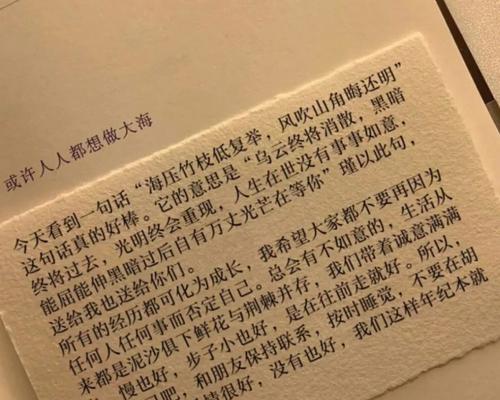 或许人人都想做大海
今天看到一句话“海压竹枝低复举，风吹山角晦还明”
这句话真的好棒。它的意思是“乌云终将消散，黑暗
终将过去，光明终会重现，人生在世没有事事如意，
能屈能伸黑暗过后自有万丈光芒在等你”谨以此句，
送给我也送给你们。
所有的经历都可化为成长，我希望大家都不要再因为
任何人任何事而否定自己。总会有不如意的，生活从
来都是泥沙俱下鲜花与荆棘并存，我们带着诚意满满
慢也好，步子小也好，是在往前走就好。所以，
和朋友保持联系，按时睡觉，不要在胡
情很好，没有也好，我们这样年纪本就